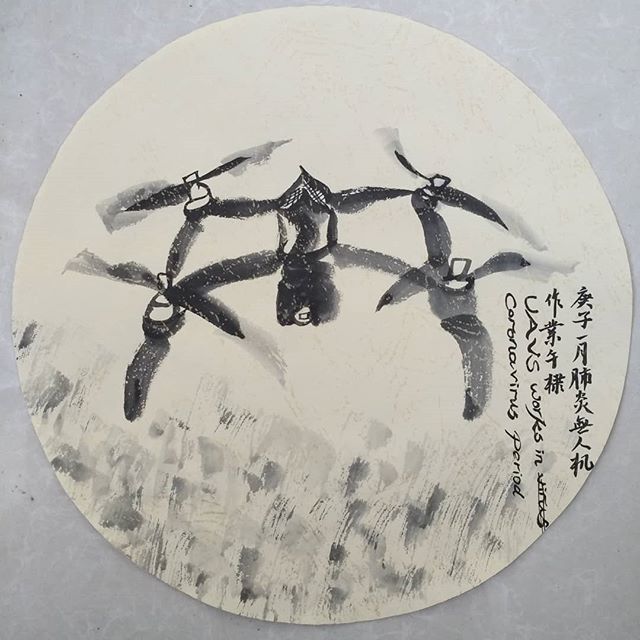 庚子一月肺炎無人机
作業午
UAVS works in virus
Coronavirus period